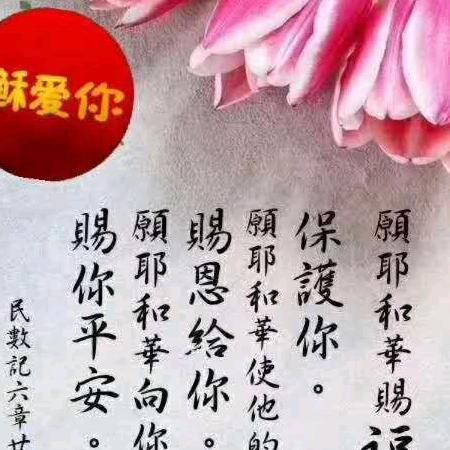 稣爱你
願耶和華賜福
保護你。
願耶和華使他的
賜恩給你。
願耶和華向你
賜你平安。
民數記六章廿